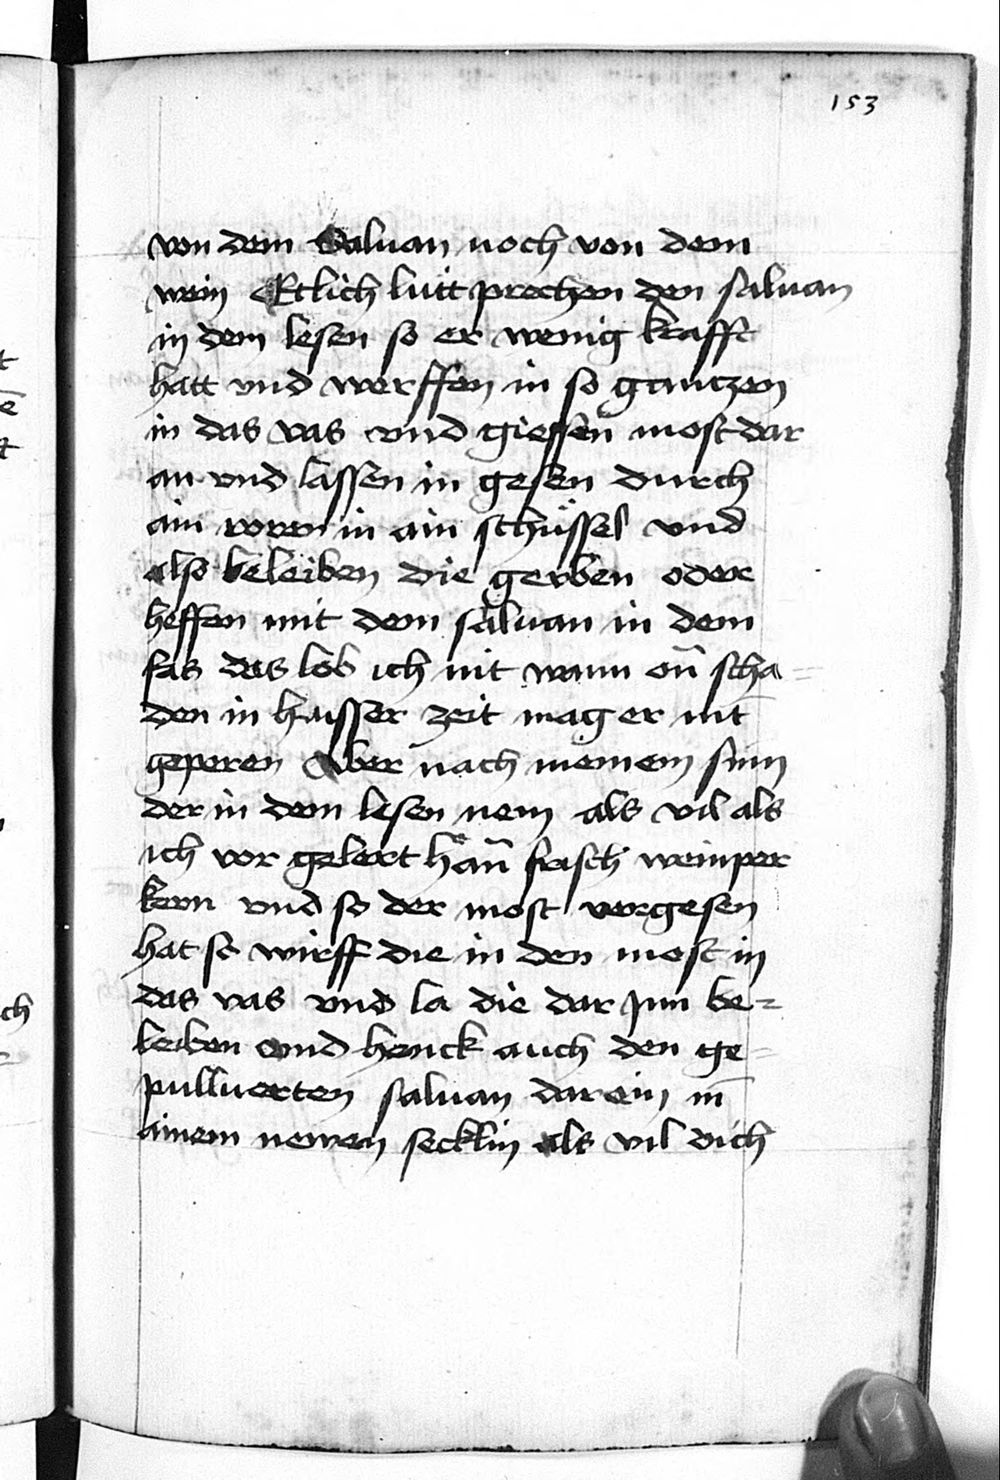 153
von dem Saluan noch von dem
wein Etlich lutt prechen den saluan
in dem lesen so er wenig krafft
hatt vnd werffen in so gantzen
in das vas vnd giessen most dar
an vnd lassen in gesen durch
ain roren in ain schüssel vnd
also beleiben die gerben oder
heffen mit dem saluan in dem
fas das lob ich nit wann on̄ scha=
den in haisser zeit mag er nit
geperen Aber nach meinem sinn
der in dem lesen nem als vil als
ich vor gelert han̄ frisch weinper
kern vnd so der most vergesen
hat so wirff die in den most in
das vas vnd la die dar jnn be=
leiben vnd henck auch den ge=
pulluerten saluan darein in
ainem newen secklin als vil dich